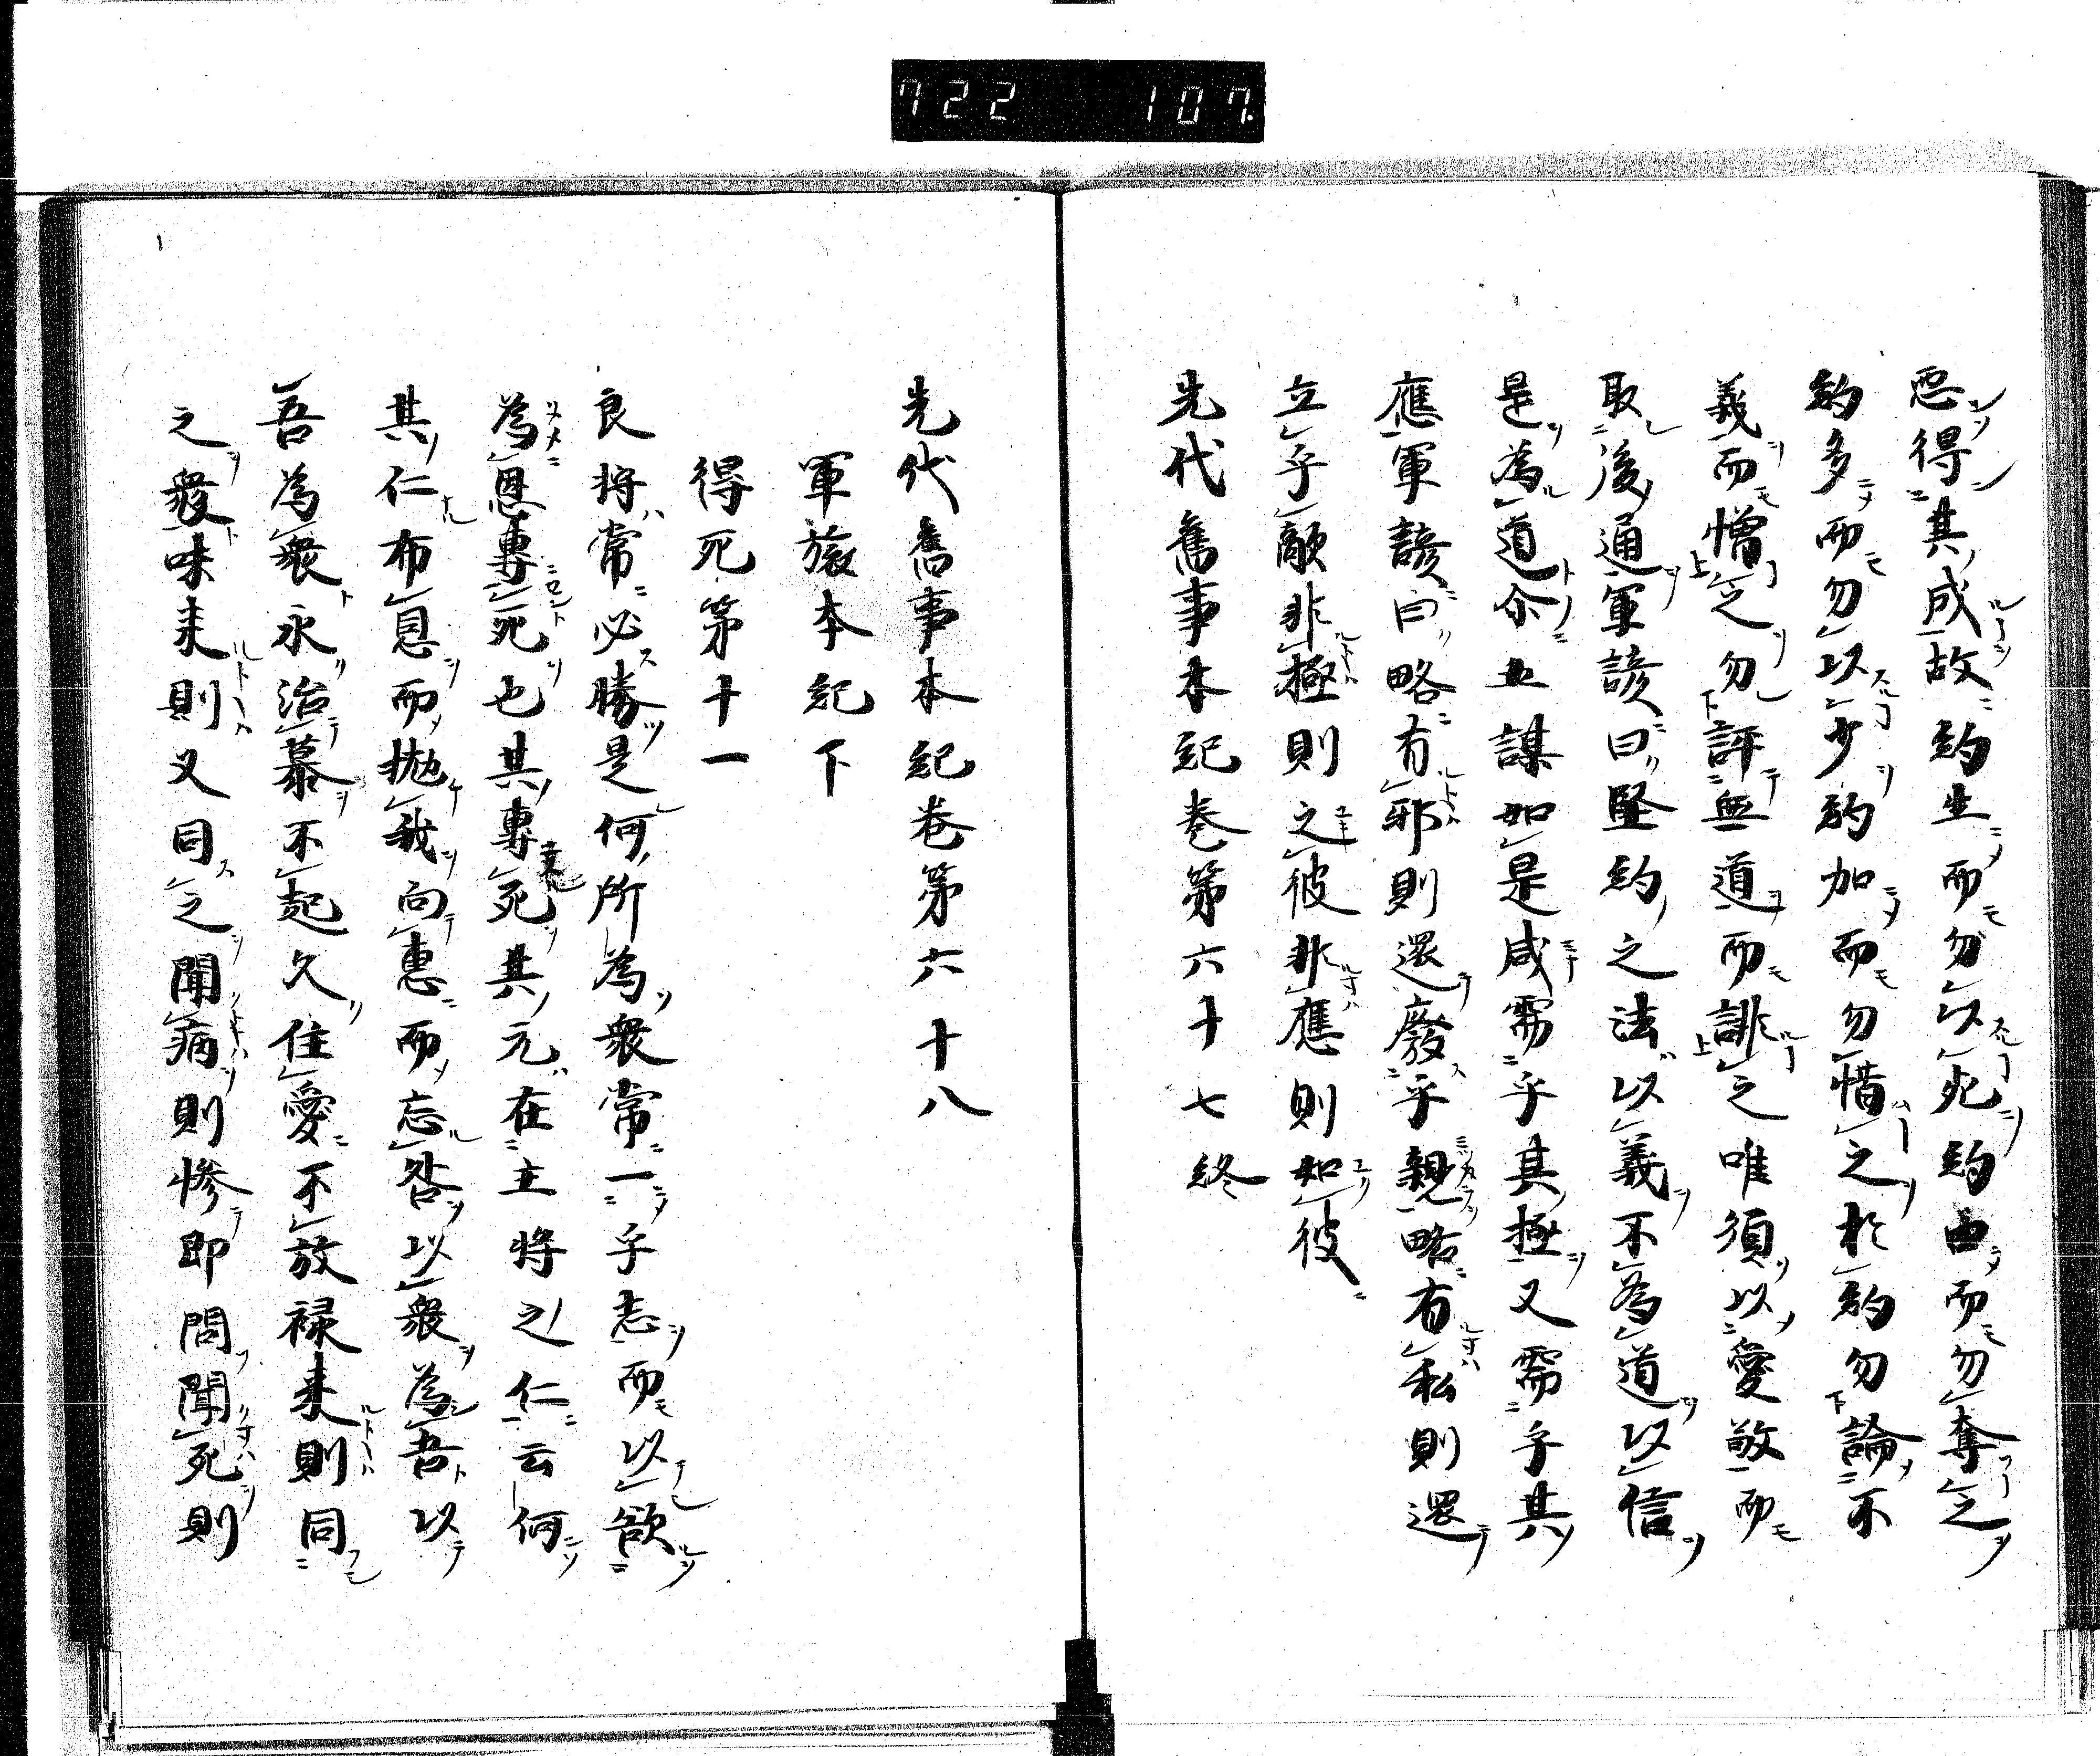 722 107.
悪得其成故約生而勿以死約由而勿奪之
約多而勿以少約加而勿惜之於約勿論不
義而憎之勿評無道而誹之唯須以愛敬而
取後通軍諺曰堅約之法以義不為道以信
是為道介五謀如是咸需乎其極又需乎其
應軍諺曰略有邪則還廢乎親略有私則還
立乎敵非極則之彼非應則如彼
先代舊事本紀巻第六十七終
先代舊事本紀巻第六十八
軍旅本紀下
得死第十一
良将常必勝是何所為衆常一乎志而以欲
為恩專死也其專死其元在主将之仁云何
其仁布恩而拋我向惠而忘咎以衆為吾以
吾為衆永治慕不起久住愛不放禄来則同
之衆味来則又同之聞病則惨即問聞死則